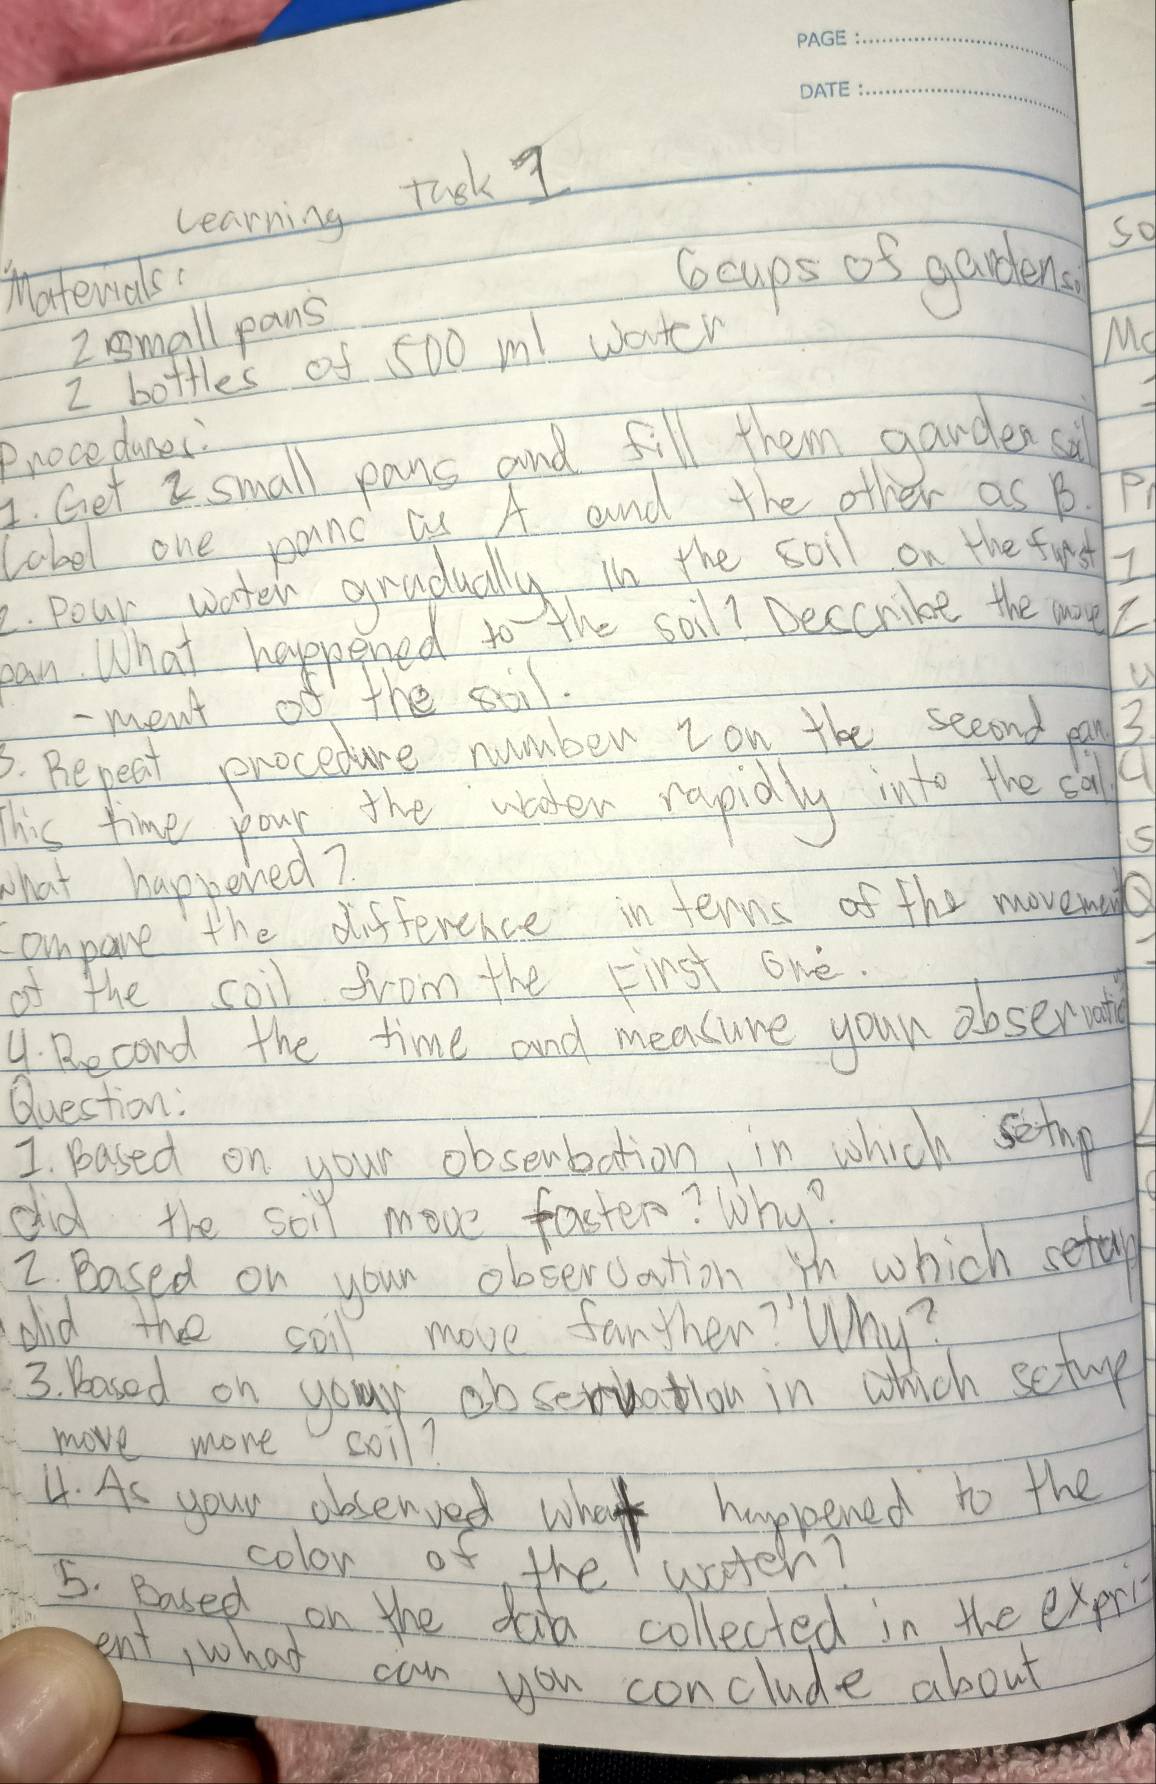 PAGE :
DATE :
Learning Task 1
Materials:
6 cups of garden soil
2 small pans
2 bottles of 500 ml water
Procedures:
1. Get 2 small pans and fill them garden soil
Label one pans as A and the other as B.
2. Pour water gradually in the soil on the first
pan. What happened to the soil? Desccribe the move
-ment of the soil.
3. Repeat procedure number 2 on the second pan
This time pour the water rapidly into the soil.
What happened?
Compare the difference in terms of the movement
of the soil from the First one.
4. Record the time and measure your observatio
Question:
1. Based on your obserbation, in which setup
did the soil move faster? Why?
2. Based on your observation in which setup
did the soil move farther? Why?
3. Based on your observation in which setup
move more soil?
4. As your observed what happened to the
color of the water?
5. Based on the data collected in the expri-
ent, what can you conclude about
so
Mo
Pr
1
2
3
4
s
Q